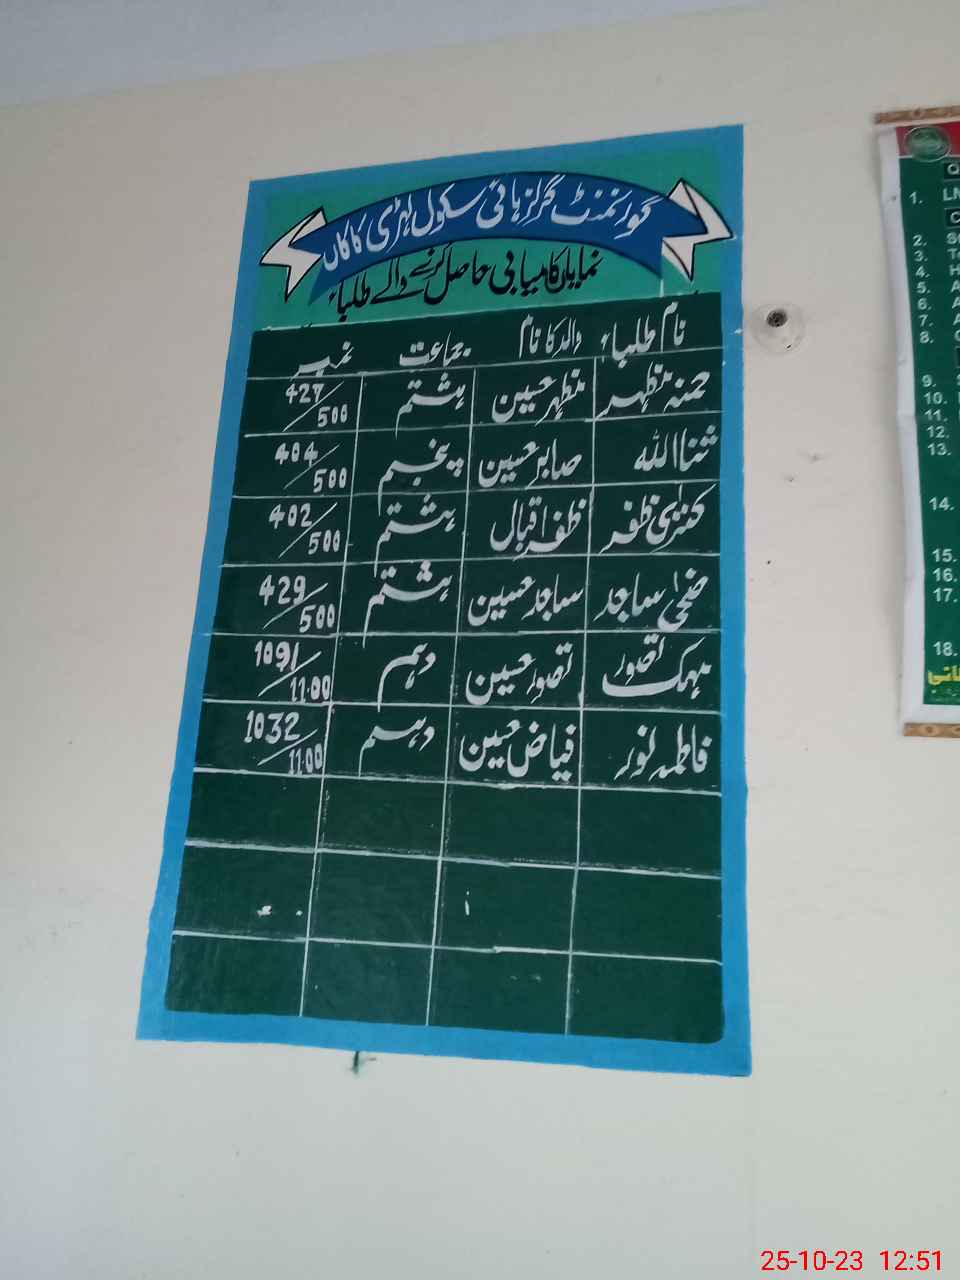 گورنمنٹ گرلز ہائی سکول لہڑی کاکاں
نمایاں کامیابی حاصل کرنے والے طلباء
نام طلباء والد کا نام جماعت نمبر
حمنہ مظہر مظہر حسین ہشتم 427/500
ثناءاللہ صابر حسین پنجم 404/500
کنزیٰ ظفر ظفر اقبال ہشتم 402/500
ضحیٰ ساجد ساجد حسین ہشتم 429/500
مہک تصور تصور حسین دہم 1091/1100
فاطمہ نور فیاض حسین دہم 1032/1100
1.
2.
3.
4.
5.
6.
7.
8.
9.
10.
11.
12.
13.
14.
15.
16.
17.
18.
25-10-23 12:51